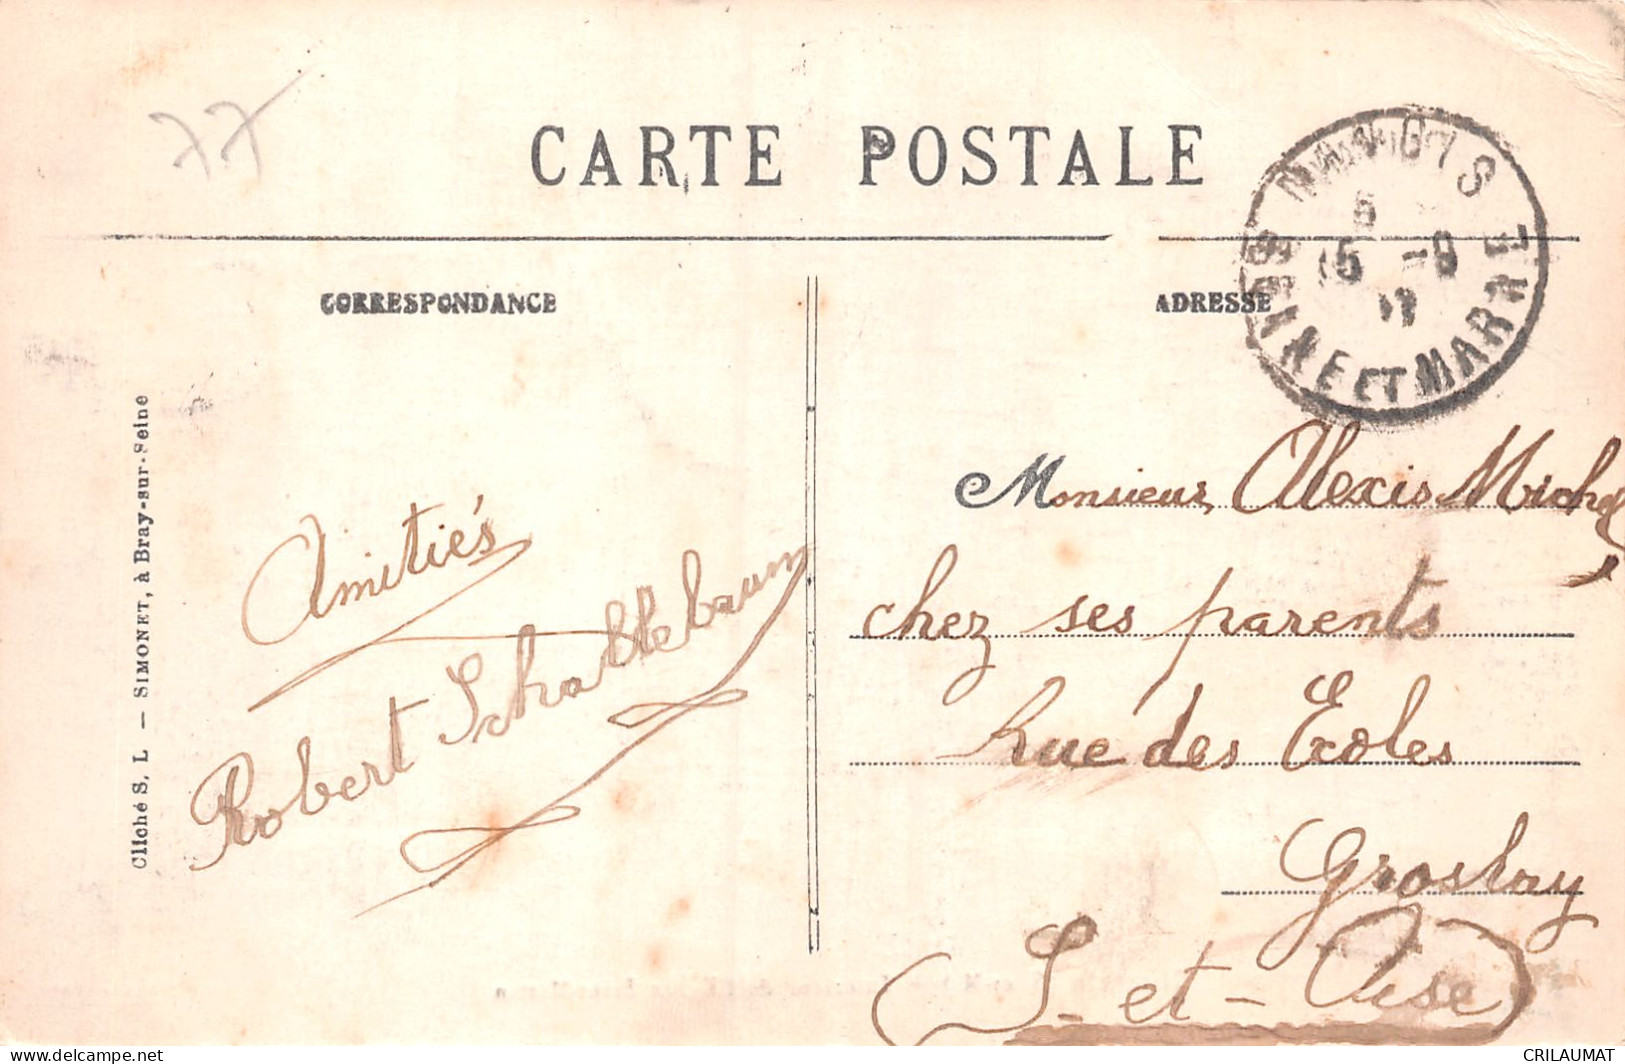 77
CARTE POSTALE
NANGIS
6
15 -9
SEINE ET MARNE
CORRESPONDANCE
ADRESSE
Cliché S. L. — SIMONET, à Bray-sur-Seine
Amitiés
Robert Schattlebaum
Monsieur Alexis Michel
chez ses parents
Rue des Ecoles
Groslay
(S- et - Oise)
CRILAUMAT